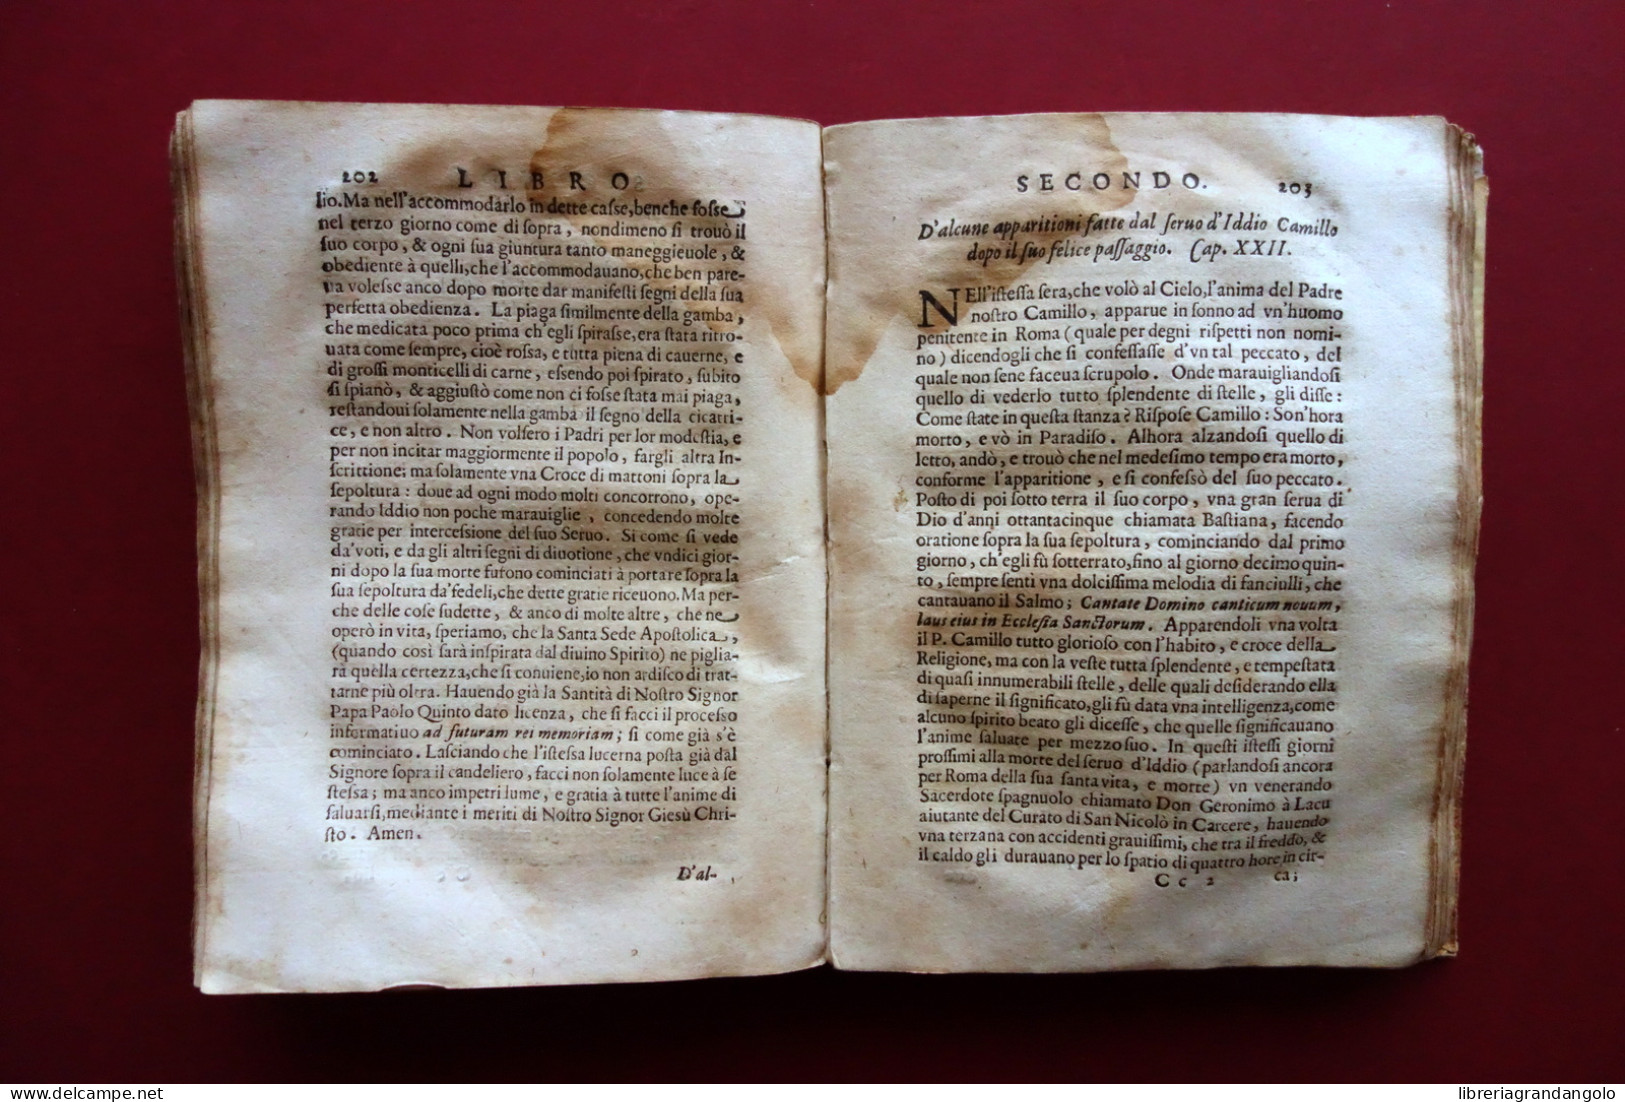 202 LIBRO
lio. Ma nell'accommodarlo in dette casse, benche fosse
nel terzo giorno come di sopra, nondimeno si trouò il
suo corpo, & ogni sua giuntura tanto maneggieuole, &
obediente à quelli, che l'accommodauano, che ben pare-
ua volesse anco dopo morte dar manifesti segni della sua
perfetta obedienza. La piaga similmente della gamba,
che medicata poco prima ch'egli spirasse, era stata ritro-
uata come sempre, cioè rossa, e tutta piena di cauerne, e
di grossi monticelli di carne, essendo poi spirato, subito
si spianò, & aggiustò come non ci fosse stata mai piaga,
restandoui solamente nella gamba il segno della cicatri-
ce, e non altro. Non volsero i Padri per lor modestia, e
per non incitar maggiormente il popolo, fargli altra In-
scrittione: ma solamente vna Croce di mattoni sopra la
sepoltura: doue ad ogni modo molti concorrono, ope-
rando Iddio non poche marauiglie, concedendo molte
gratie per intercessione del suo Seruo. Si come si vede
da'voti, e da gli altri segni di diuotione, che vndici gior-
ni dopo la sua morte furono cominciati à portare sopra la
sua sepoltura da'fedeli, che dette gratie riceuono. Ma per-
che delle cose sudette, & anco di molte altre, che ne
operò in vita, speriamo, che la Santa Sede Apostolica,
(quando così sarà inspirata dal diuino Spirito) ne piglia-
rà quella certezza, che si conuiene, io non ardisco di trat-
tarne più oltra. Hauendo già la Santità di Nostro Signor
Papa Paolo Quinto dato licenza, che si facci il processo
informatiuo ad futuram rei memoriam; si come già s'è
cominciato. Lasciando che l'istessa lucerna posta già dal
Signore sopra il candeliero, facci non solamente luce à se
stessa; ma anco impetri lume, e gratia à tutte l'anime di
saluarsi, mediante i meriti di Nostro Signor Giesù Chri-
sto. Amen.
D'al-
SECONDO. 203
D'alcune apparitioni fatte dal seruo d'Iddio Camillo
dopo il suo felice passaggio. Cap. XXII.
NEll'istessa sera, che volò al Cielo, l'anima del Padre
nostro Camillo, apparue in sonno ad vn'huomo
penitente in Roma (quale per degni rispetti non nomi-
no) dicendogli che si confessasse d'vn tal peccato, del
quale non sene faceua scrupolo. Onde marauigliandosi
quello di vederlo tutto splendente di stelle, gli disse:
Come state in questa stanza? Rispose Camillo: Son'hora
morto, e vò in Paradiso. Alhora alzandosi quello di
letto, andò, e trouò che nel medesimo tempo era morto,
conforme l'apparitione, e si confessò del suo peccato.
Posto di poi sotto terra il suo corpo, vna gran serua di
Dio d'anni ottantacinque chiamata Bastiana, facendo
oratione sopra la sua sepoltura, cominciando dal primo
giorno, ch'egli fù sotterrato, fino al giorno decimo quin-
to, sempre sentì vna dolcissima melodia di fanciulli, che
cantauano il Salmo; Cantate Domino canticum nouum,
laus eius in Ecclesia Sanctorum. Apparendoli vna volta
il P. Camillo tutto glorioso con l'habito, e croce della
Religione, ma con la veste tutta splendente, e tempestata
di quasi innumerabili stelle, delle quali desiderando ella
di saperne il significato, gli fù data vna intelligenza, come
alcuno spirito beato gli dicesse, che quelle significauano
l'anime saluate per mezzo suo. In questi istessi giorni
prossimi alla morte del seruo d'Iddio (parlandosi ancora
per Roma della sua santa vita, e morte) vn venerando
Sacerdote spagnuolo chiamato Don Geronimo à Lacu
aiutante del Curato di San Nicolò in Carcere, hauendo
vna terzana con accidenti grauissimi, che tra il freddo, &
il caldo gli durauano per lo spatio di quattro hore in cir-
Cc 2 ca;
libreriagrandangolo